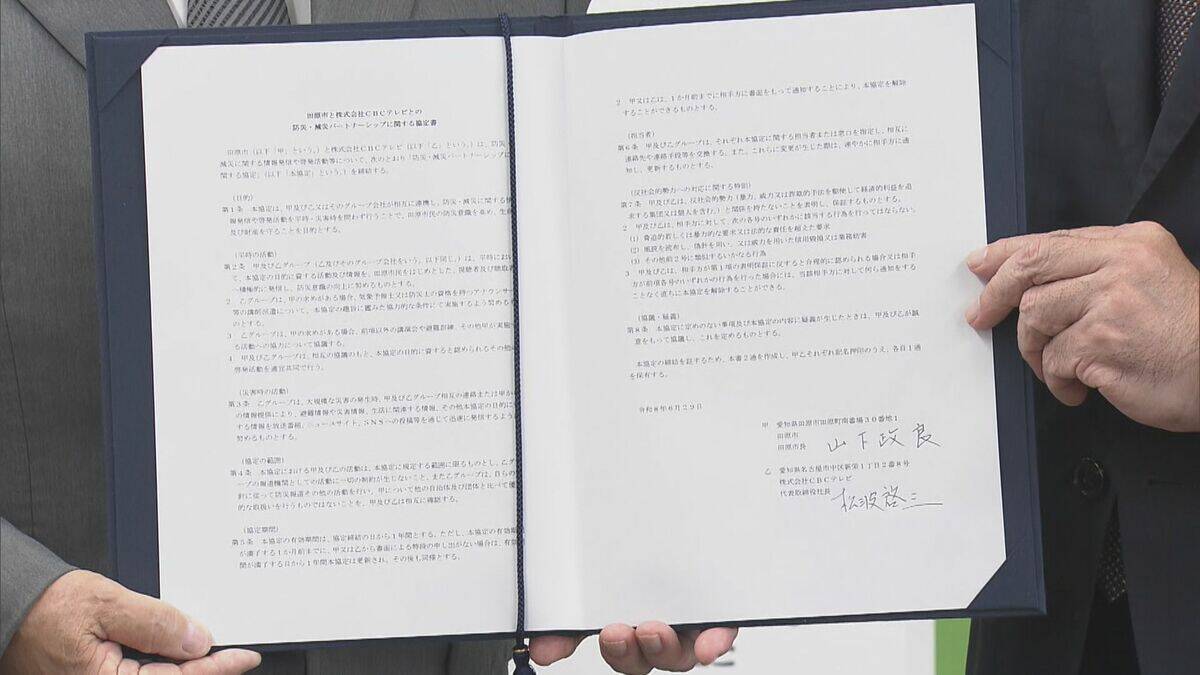 田原市と株式会社CBCテレビとの
防災・減災パートナーシップに関する協定書
田原市(以下「甲」という。)と株式会社CBCテレビ(以下「乙」という。)は、防災・
減災に関する情報発信や啓発活動等について、次のとおり「防災・減災パートナーシップに
関する協定」(以下「本協定」という。)を締結する。
(目的)
第1条 本協定は、甲及び乙又はそのグループ会社が相互に連携し、防災・減災に関する情
報発信や啓発活動を平時・災害時を問わず行うことで、田原市民の防災意識を高め、生命
及び財産を守ることを目的とする。
(平時の活動)
第2条 甲及び乙グループ(乙及びそのグループ会社をいう。以下同じ。)は、平時におい
て、本協定の目的に資する活動及び情報を、田原市民をはじめとした、視聴者及び聴取者
へ積極的に発信し、防災意識の向上に努めるものとする。
2 乙グループは、甲の求めがある場合、気象予報士又は防災上の資格を持つアナウンサー
等の講師派遣について、本協定の趣旨に鑑みた協力的な条件にて実施するよう努めるも
のとする。
3 乙グループは、甲の求めがある場合、前項以外の講演会や避難訓練、その他甲が実施す
る活動への協力について協議する。
4 甲及び乙グループは、相互の協議のもと、本協定の目的に資すると認められるその他
啓発活動を適宜共同で行う。
(災害時の活動)
第3条 乙グループは、大規模な災害の発生時、甲及び乙グループ相互の連絡または甲か
の情報提供により、避難情報や災害情報、生活に関連する情報、その他本協定の目的に
する情報を放送番組、ニュースサイト、SNSへの投稿等を通じて迅速に発信するよう
努めるものとする。
(協定の範囲)
第4条 本協定における甲及び乙の活動は、本協定に規定する範囲に限るものとし、乙グ
ープの報道機関としての活動に一切の制約が生じないこと、また乙グループは、自らの
針に従って防災報道その他の活動を行い、甲について他の自治体及び団体と比べて優
的な取扱いを行うものではないことを、甲及び乙は相互に確認する。
(協定期間)
第5条 本協定の有効期間は、協定締結の日から1年間とする。ただし、本協定の有効期
が満了する1か月前までに、甲又は乙から書面による特段の申し出がない場合は、有効
間が満了する日から1年間本協定は更新され、その後も同様とする。
2 甲又は乙は、1か月前までに相手方に書面をもって通知することにより、本協定を解除
することができるものとする。
(担当者)
第6条 甲及び乙グループは、それぞれ本協定に関する担当者または窓口を指定し、相互に
連絡先や連絡手段等を交換する。また、これらに変更が生じた際は、速やかに相手方に通
知し、更新するものとする。
(反社会的勢力への対応に関する特則)
第7条 甲及び乙は、反社会的勢力(暴力、威力又は詐欺的手法を駆使して経済的利益を追
求する集団又は個人を含む。)と関係を持たないことを表明し、保証するものとする。
2 甲及び乙は、相手方に対して、次の各号のいずれかに該当する行為を行ってはならない。
(1) 脅迫的若しくは暴力的な要求又は法的な責任を超えた要求
(2) 風説を流布し、偽計を用い、又は威力を用いた信用毀損又は業務妨害
(3) その他前2号に類似するいかなる行為
3 甲及び乙は、相手方が第1項の表明保証に反すると合理的に認められる場合又は相手
方が前項各号のいずれかの行為を行った場合には、当該相手方に対して何ら通知をする
ことなく直ちに本協定を解除することができる。
(協議・疑義)
第8条 本協定に定めのない事項及び本協定の内容に疑義が生じたときは、甲及び乙が誠
意をもって協議し、これを定めるものとする。
本協定の締結を証するため、本書2通を作成し、甲乙それぞれ記名押印のうえ、各自1通
を保有する。
令和8年6月29日
甲 愛知県田原市田原町南番場30番地1
田原市
田原市長 山下政良
乙 愛知県名古屋市中区新栄1丁目2番8号
株式会社CBCテレビ
代表取締役社長 松波啓三